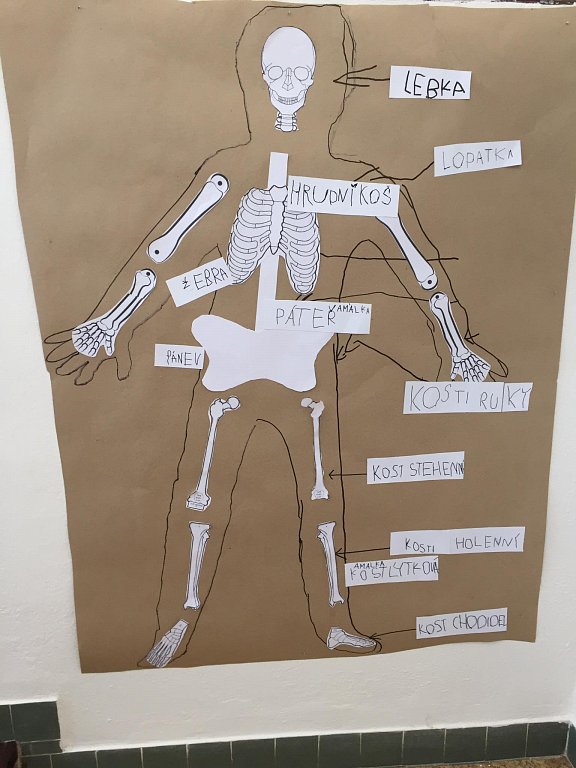 LEBKA
LOPATKA
HRUDNÍ KOŠ
ŽEBRA
PÁTEŘ
AMÁLKA
PÁNEV
KOSTI RUKY
KOST STEHENN
KOSTI HOLENNÝ
AMÁLKA
KOST LÝTKOVÁ
KOST CHODIDEL